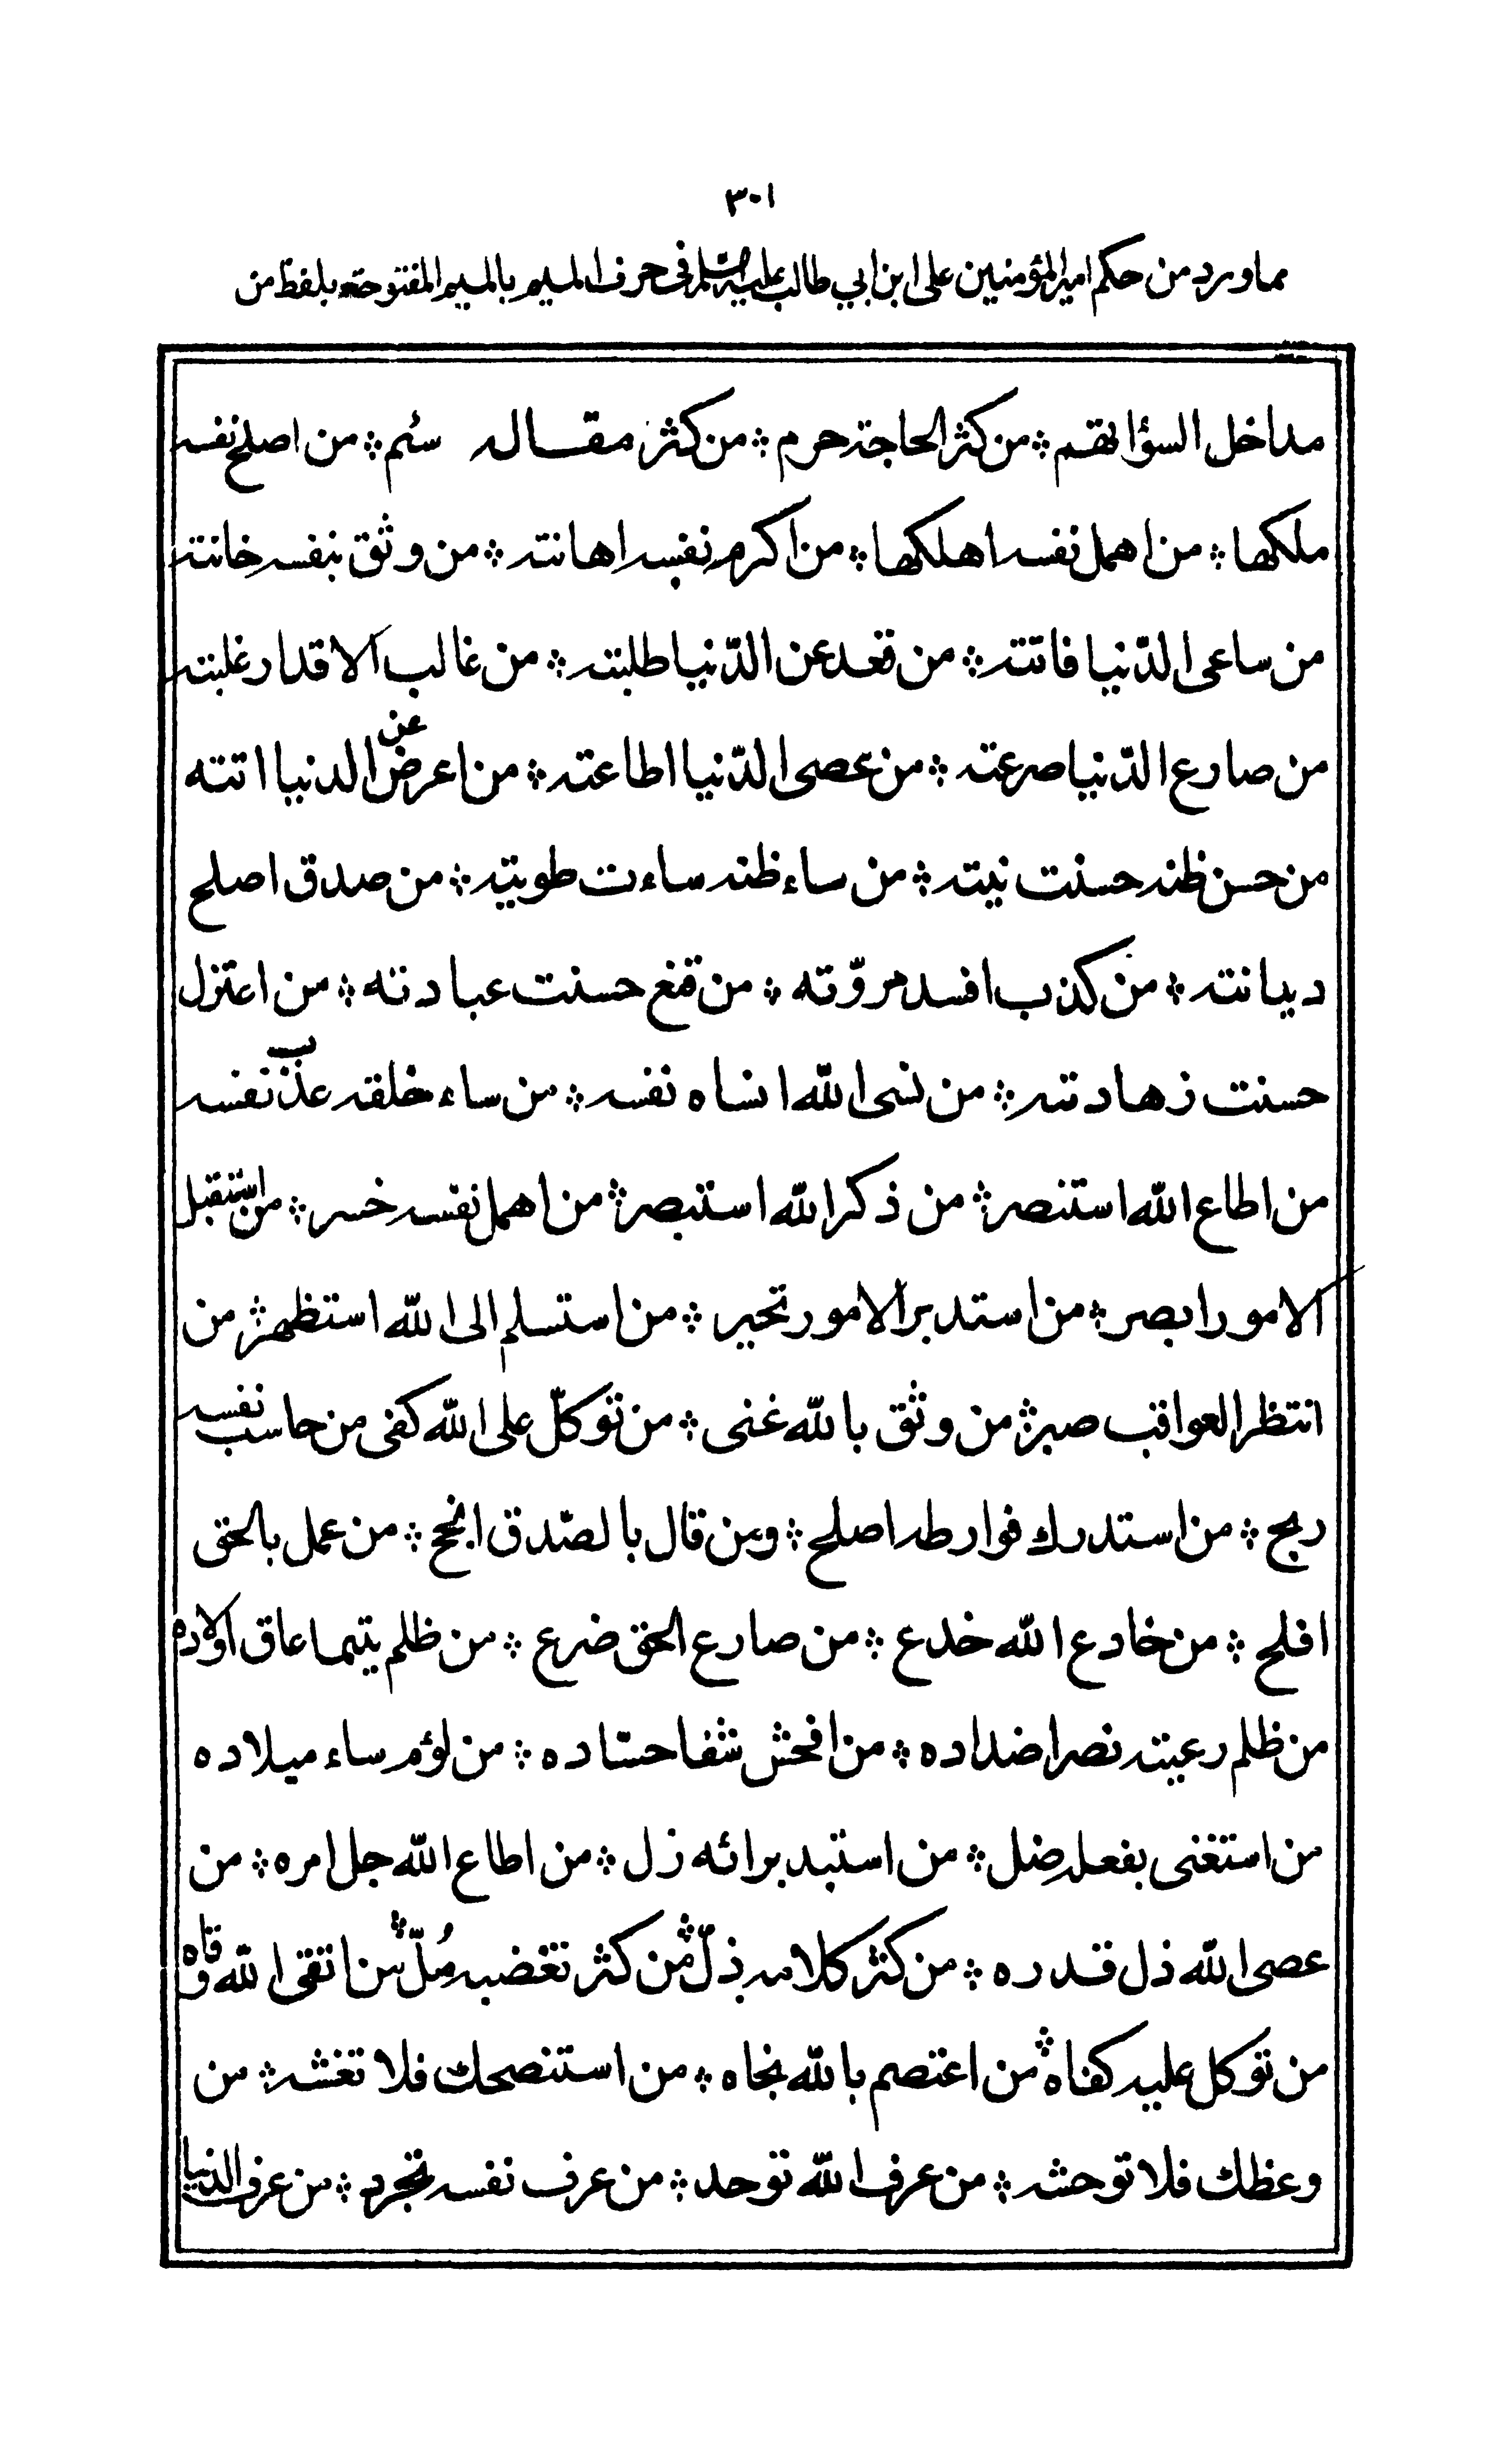 ٣٠١
مما ورد من حكم امير المؤمنين على ابن ابي طالب عليه السلام فى حرف الميم بالميم المفتوحة بلفظ من
مداخل السؤاتهم ؞ من كثر الحاجة حرم ؞ من كثر مقاله سئم ؞ من اصلح نفسه
ملكها ؞ من اهمل نفسه اهلكها ؞ من اكرم نفسه اهانته ؞ من وثق بنفسه خانته
من ساعى الدّنيا فاتته ؞ من قعد عن الدّنيا طلبته ؞ من غالب الاقدار غلبته
من صارع الدّنيا صرعته ؞ من عصى الدّنيا اطاعته ؞ من اعرض عن الدنيا اتته
من حسن ظنه حسنت نيته ؞ من ساء ظنه ساءت طويته ؞ من صدق اصلح
ديانته ؞ من كذب افسد مروّته ؞ من قنع حسنت عبادته ؞ من اعتزل
حسنت زهادته ؞ من نسى الله انساه نفسه ؞ من ساء خلقه عذب نفسه
من اطاع الله استنصر ؞ من ذكر الله استبصر ؞ من اهمل نفسه خسر ؞ من استقبل
الامور ابصر ؞ من استدبر الامور تحير ؞ من استسلم الى الله استظهر ؞ من
انتظر العواقب صبر ؞ من وثق بالله غنى ؞ من توكلّ على الله كفى من حاسب نفسه
ربح ؞ من استدرك فوارطه اصلح ؞ ومن قال بالصّدق انجح ؞ من عمل بالحق
افلح ؞ من خادع الله خدع ؞ من صارع الحق ضرع ؞ من ظلم يتيما عاق اولاده
من ظلم رعيته نصر اضداده ؞ من افحش شفا حسّاده ؞ من لؤم ساء ميلاده
من استغنى بفعله ضل ؞ من استبد برائه زل ؞ من اطاع الله جل امره ؞ من
عصى الله ذل قدره ؞ من كثر كلامه ذلّ ؞ من كثر تغضبه مُلّ ؞ من اتقى الله وقاه
من توكل عليه كفاه ؞ من اعتصم بالله نجاه ؞ من استنصحك فلا تغشه ؞ من
وعظك فلا توحشه ؞ من عرف الله توحد ؞ من عرف نفسه تجرد ؞ من عرف الدنيا